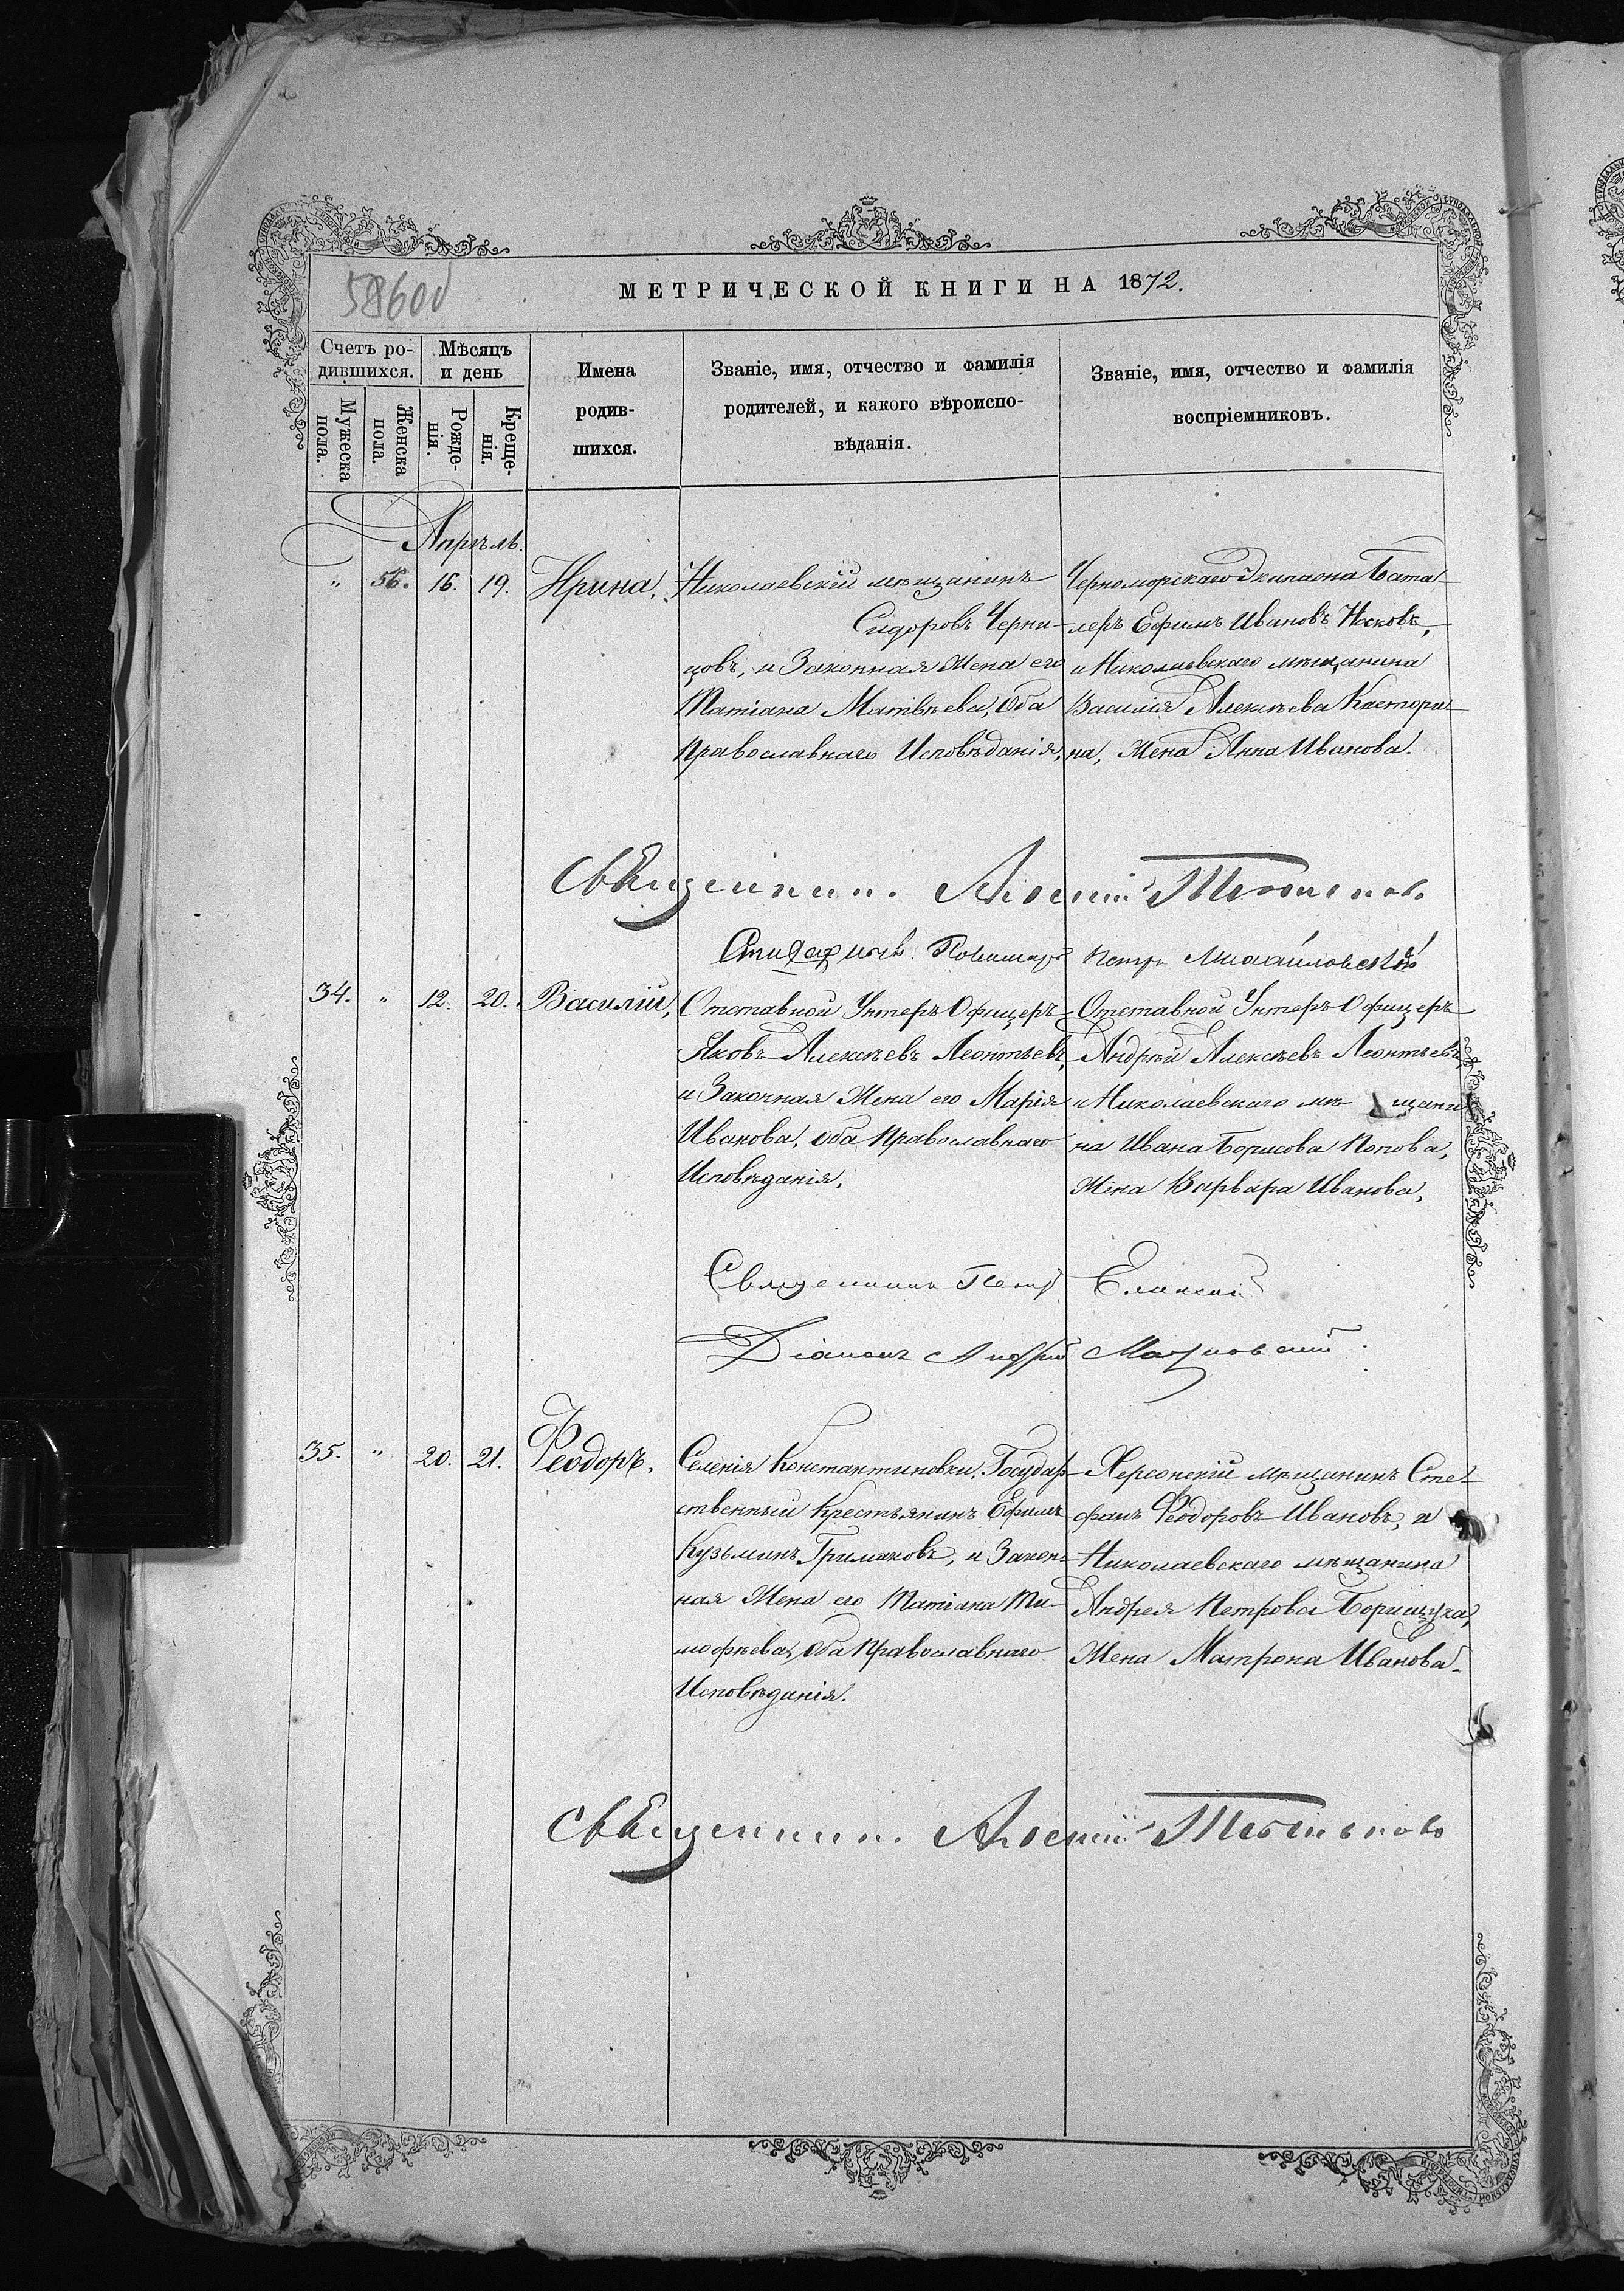 586об
МЕТРИЧЕСКОЙ КНИГИ НА 1872.
Счетъ ро-
дившихся.
Мѣсяцъ
и день
Мужеска
пола.
Женска
пола.
Рожде-
нія.
Креще-
нія.
Имена
родив-
шихся.
Званіе, имя, отчество и фамилія
родителей, и какого вѣроиспо-
вѣданія.
Званіе, имя, отчество и фамилія
воспріемниковъ.
Апрѣль.
" 56. 16. 19. Ирина,
Николаевскій мѣщанинъ
Сидоровъ Черни-
цовъ, и Законная Жена его
Татіана Матвѣева, Оба
Православнаго Исповѣданія,
Черноморскаго Экипажа Бата-
леръ Ефимъ Ивановъ Носковъ,
и Николаевскаго мѣщанина
Василія Алексѣева Кастори-
на, Жена Анна Иванова.
Священникъ
Петръ Михайловскій
34. " 12. 20. Василій,
Отставной Унтеръ Офицеръ
Яковъ Алексѣевъ Леонтьевъ,
и Законная Жена его Марія
Иванова, Оба Православнаго
Исповѣданія,
Отставной Унтеръ Офицеръ
Андрей Алексѣевъ Леонтьевъ,
и Николаевскаго мѣщани
на Ивана Борисова Попова,
Жена Варвара Иванова,
Священникъ Петръ Еланскій
Діаконъ Андрей
35. " 20. 21. Ѳеодоръ,
Селенія Константиновки, Государ-
ственный Крестьянинъ Ефимъ
Кузьминъ Гримаковъ, и Закон-
ная Жена его Татіана Ти-
мофѣева, Оба Православнаго
Исповѣданія.
Херсонскій мѣщанинъ Сте-
фанъ Ѳеодоровъ Ивановъ, и
Николаевскаго мѣщанина
Андрея Петрова Борищука,
Жена Матрона Иванова.
Священникъ